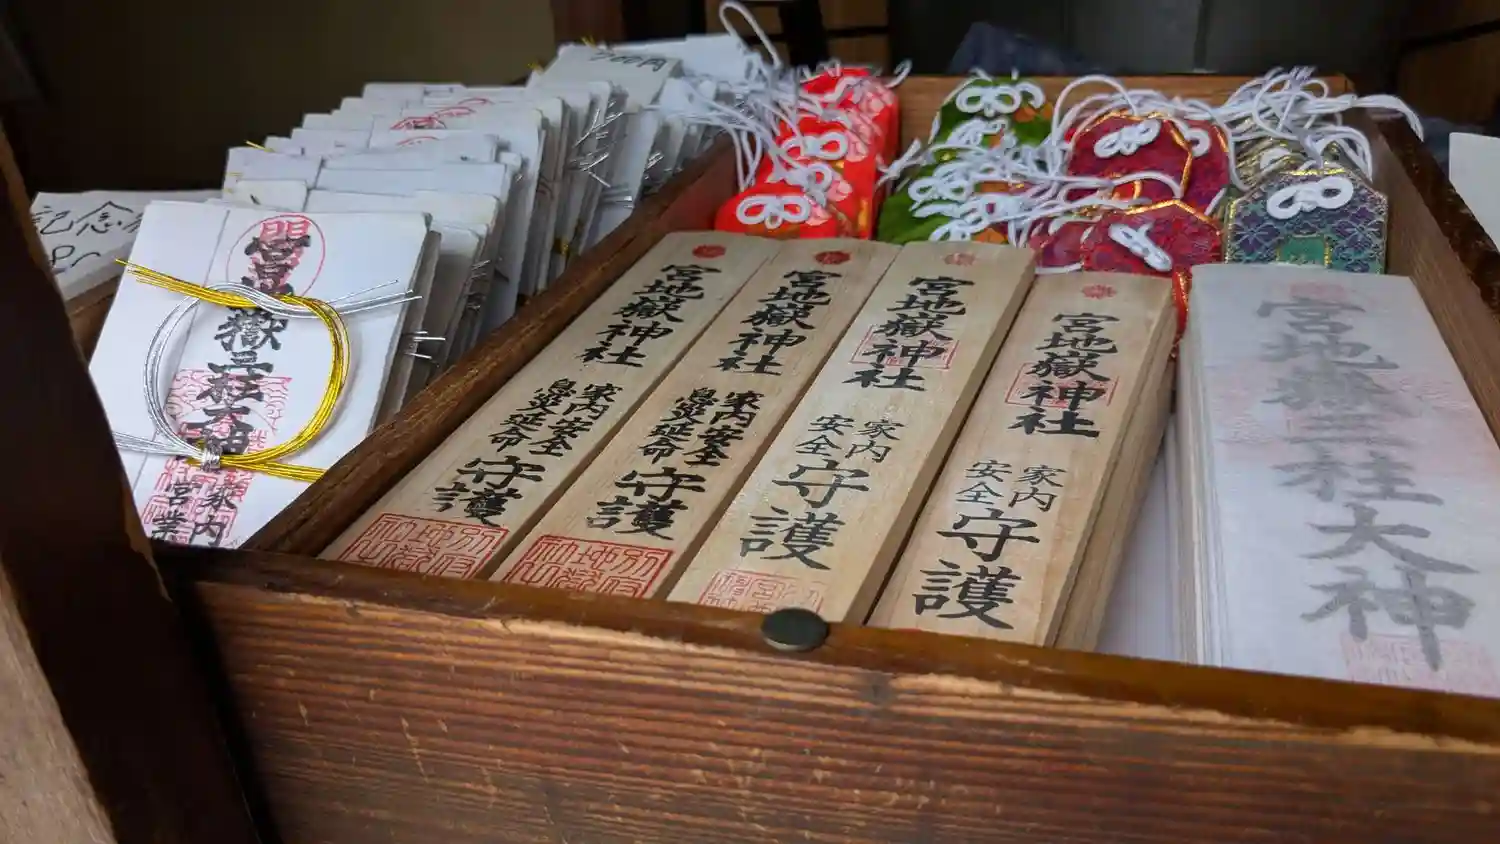 700円
記念
宮地嶽三柱大神
家内
営業
宮地嶽神社
家内安全
息災延命
守護
宮地嶽神社
家内安全
息災延命
守護
宮地嶽神社
家内
安全
守護
宮地嶽神社
家内
安全
守護
宮地嶽三柱大神